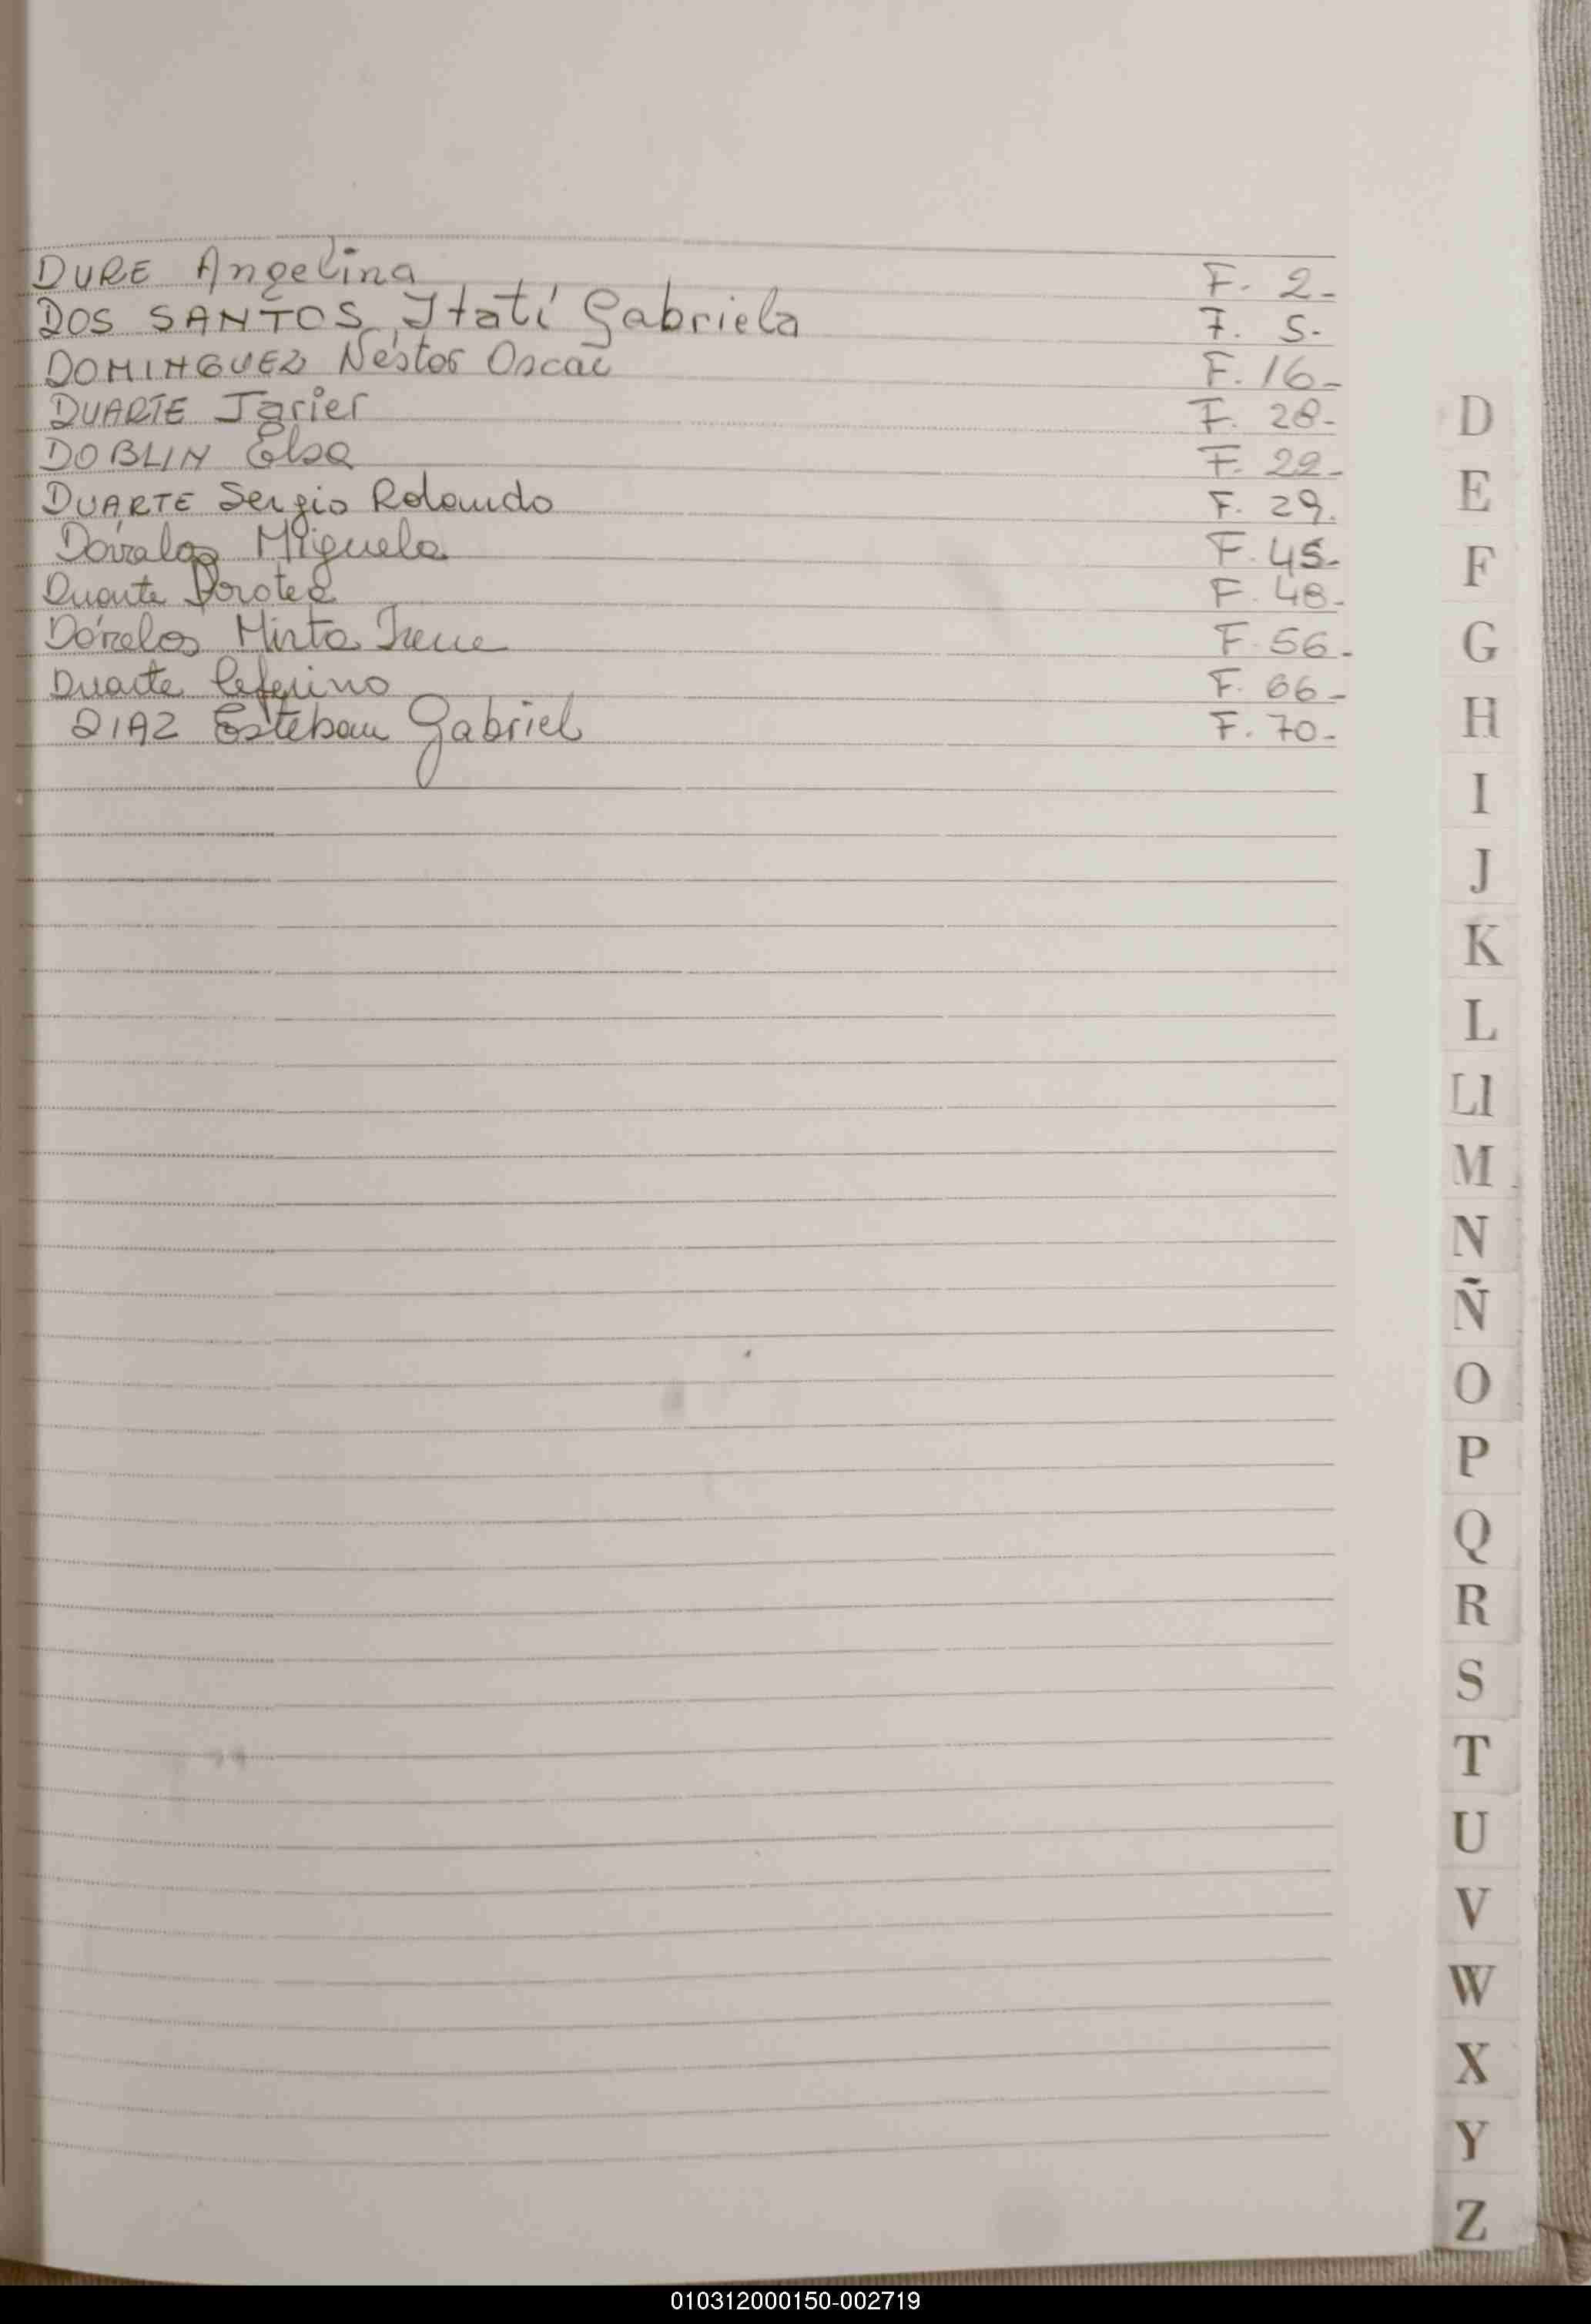 DURE Angelina F. 2-
DOS SANTOS, Itatí Gabriela F. 5-
DOMINGUEZ Néstor Oscar F. 16-
DUARTE Javier F. 28-
DOBLIN Elsa F. 22-
DUARTE Sergio Rolando F. 29.
Dávalos Miguela F. 45-
Duarte Dorotea F. 48-
Dávalos Mirta Irene F. 56-
Duarte Ceferino F. 66-
DIAZ Esteban Gabriel F. 70-
D
E
F
G
H
I
J
K
L
Ll
M
N
Ñ
O
P
Q
R
S
T
U
V
W
X
Y
Z
010312000150-002719